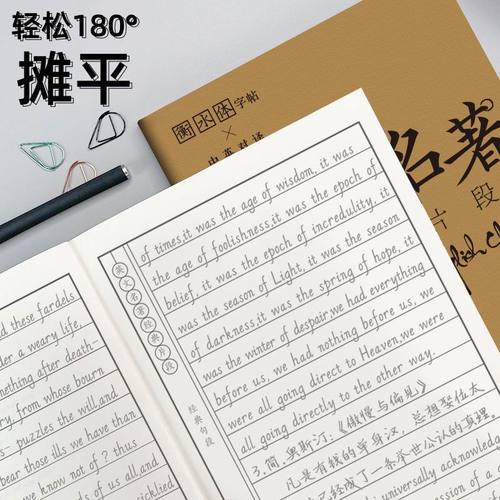 轻松180°
摊平
衡水体字帖
×
中英对译
名著
片段
nd these fardels
der a weary life,
mething after death-
ry, from whose bourn
puzzles the will, and
bear those ills we have than
we know not of? thus
of us all, and
英文名著经典片段
经典句段
of times, it was the age of wisdom, it was
the age of foolishness, it was the epoch of
belief, it was the epoch of incredulity, it
was the season of Light, it was the season
of darkness, it was the spring of hope, it
was the winter of despair, we had everything
before us, we had nothing before us, we
were all going direct to Heaven, we were
all going directly to the other way.
3.简·奥斯汀:《傲慢与偏见》
凡是有钱的单身汉,总想娶位太
成了一条举世公认的真理。
universally acknowledged
ession of a